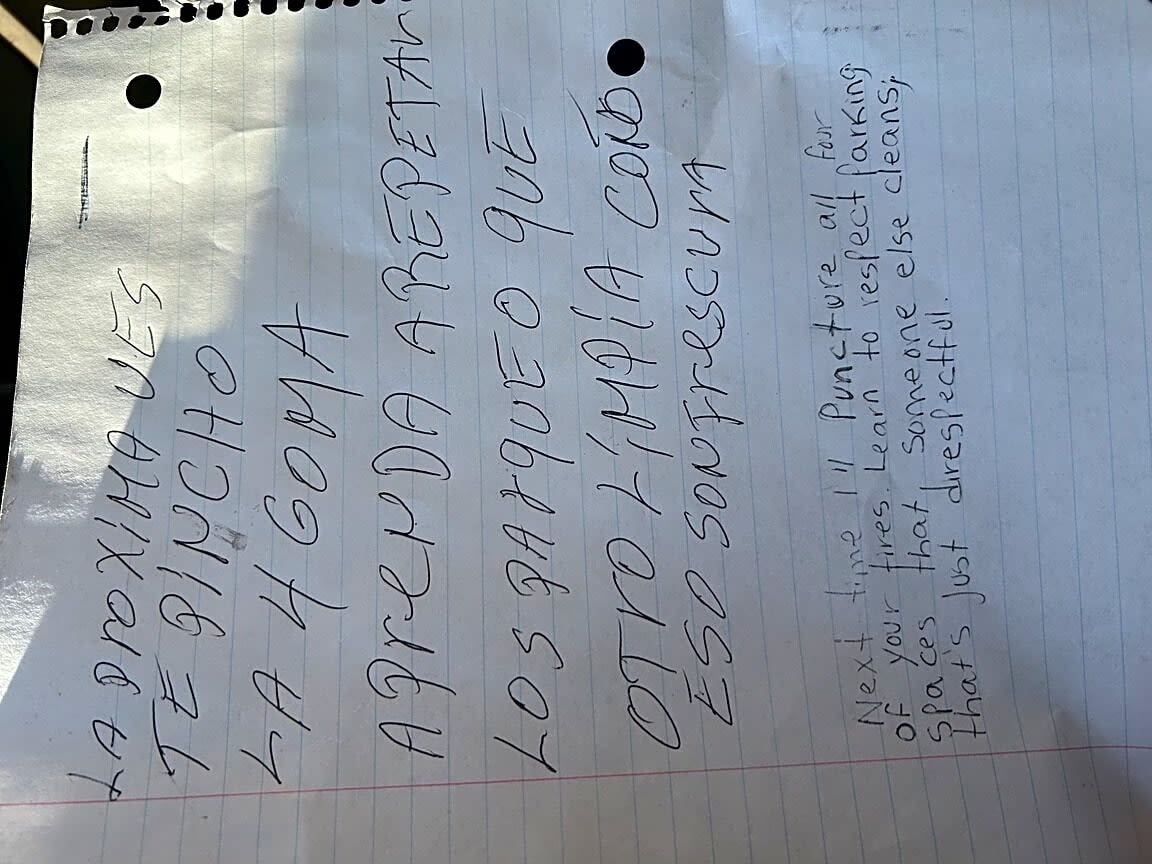 LA PrOXiMA VES
TE PiNCHO
LA 4 GOMA
APreNDA A REPETAr
LOS PArQUEO QUE
OTrO LiMPiA COÑO
ESO SON FrescurA
Next time I'll Puncture all four
of your tires. Learn to respect parking
spaces that someone else cleans,
that's just direspectful.